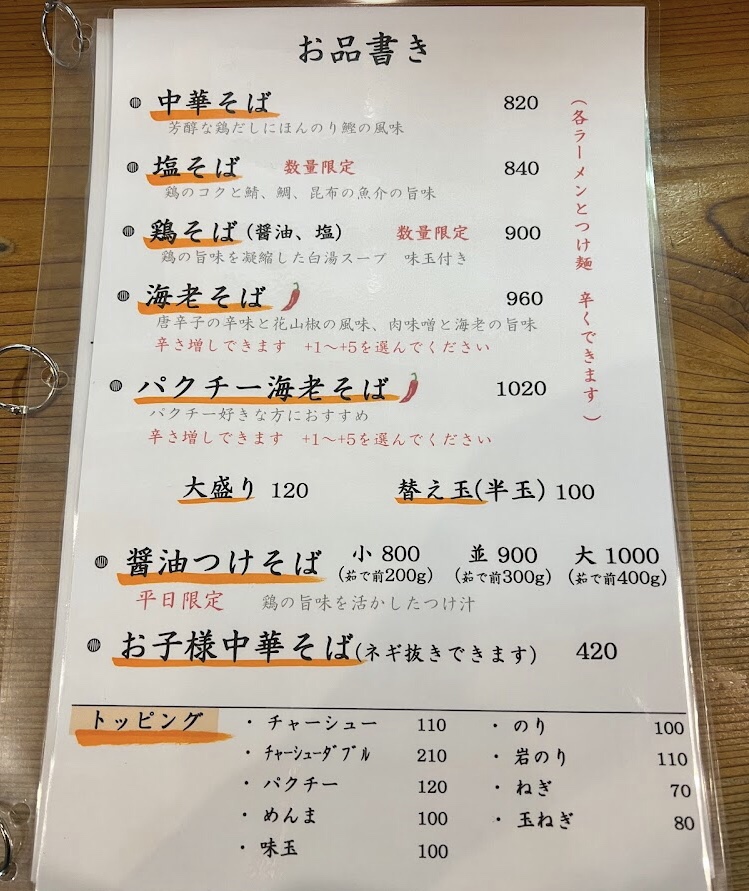 お品書き
中華そば 820
芳醇な鶏だしにほんのり鰹の風味
塩そば 数量限定 840
鶏のコクと鯖、鯛、昆布の魚介の旨味
鶏そば(醤油、塩) 数量限定 900
鶏の旨味を凝縮した白湯スープ 味玉付き
海老そば 960
唐辛子の辛味と花山椒の風味、肉味噌と海老の旨味
辛さ増しできます +1〜+5を選んでください
パクチー海老そば 1020
パクチー好きな方におすすめ
辛さ増しできます +1〜+5を選んでください
(各ラーメンとつけ麺 辛くできます)
大盛り 120 替え玉(半玉) 100
醤油つけそば 小 800 並 900 大 1000
(茹で前200g) (茹で前300g) (茹で前400g)
平日限定 鶏の旨味を活かしたつけ汁
お子様中華そば(ネギ抜きできます) 420
トッピング
・チャーシュー 110
・チャーシューダブル 210
・パクチー 120
・めんま 100
・味玉 100
・のり 100
・岩のり 110
・ねぎ 70
・玉ねぎ 80